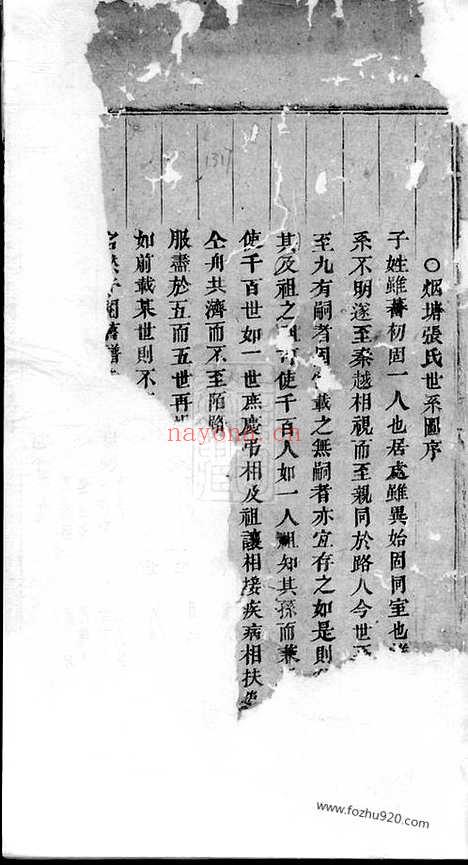 ○烟塘張氏世系圖序
子姓雖蕃初固一人也居處雖異始固同室也
系不明遂至秦越相視而至親同於路人今世
至九有嗣者固 載之無嗣者亦宜存之如是則
其及祖之 使千百人如一人祖知其孫而兼
使千百世如一世庶慶弔相及祖讓相接疾病相扶
仝舟共濟而不至陌路
服盡於五而五世再
如前載某世則不
1317
nayona.cn
www.fozhu920.com